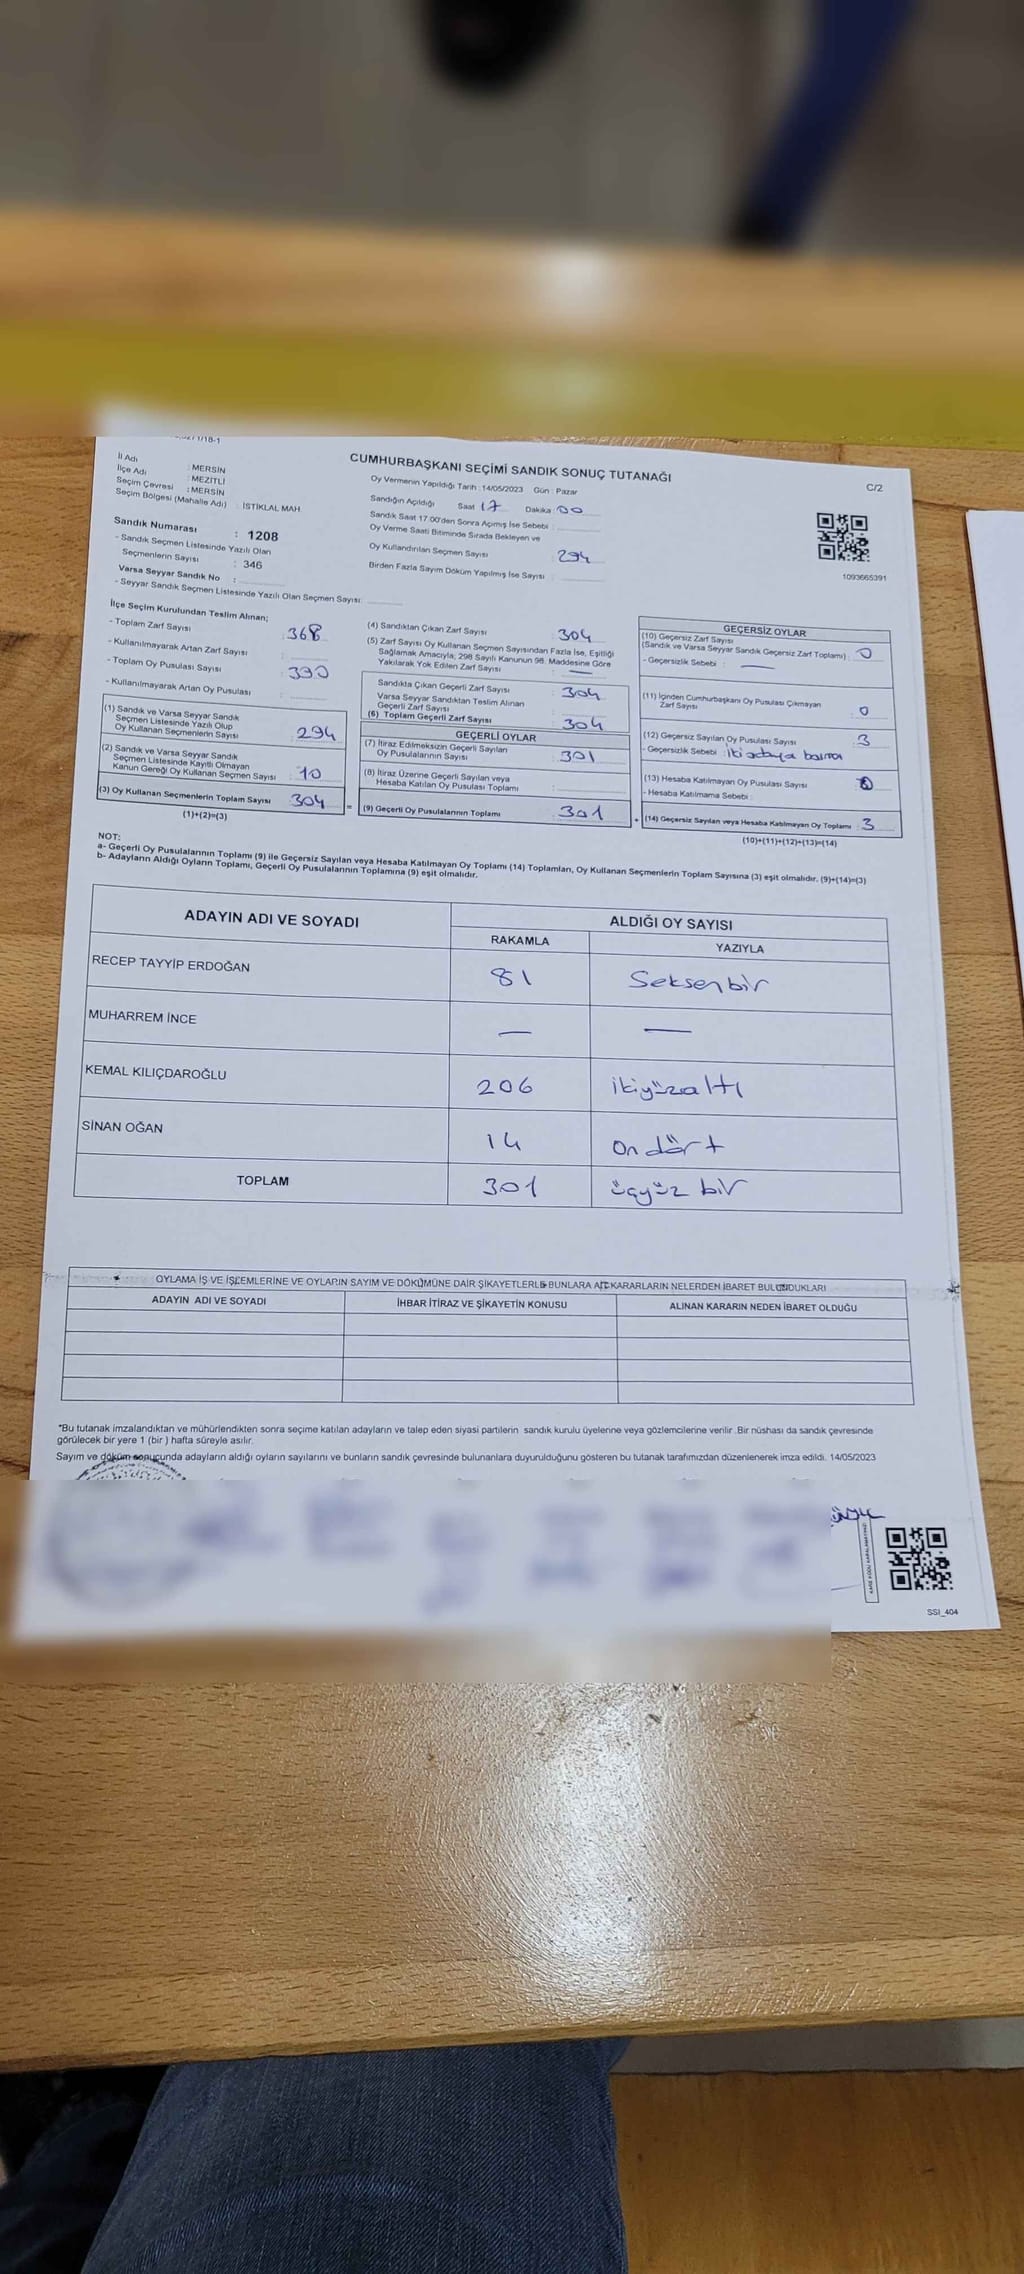 CUMHURBAŞKANI SEÇİMİ SANDIK SONUÇ TUTANAĞI
C/2
İl Adı : MERSİN
İlçe Adı : MEZİTLİ
Seçim Çevresi : MERSİN
Seçim Bölgesi (Mahalle Adı) : İSTİKLAL MAH.
Sandık Numarası : 1208
- Sandık Seçmen Listesinde Yazılı Olan
Seçmenlerin Sayısı : 346
Varsa Seyyar Sandık No :
- Seyyar Sandık Seçmen Listesinde Yazılı Olan Seçmen Sayısı:
Oy Vermenin Yapıldığı Tarih : 14/05/2023 Gün : Pazar
Sandığın Açıldığı Saat 17 Dakika 00
Sandık Saat 17:00'den Sonra Açımış İse Sebebi :
Oy Verme Saati Bitiminde Sırada Bekleyen ve
Oy Kullandırılan Seçmen Sayısı : 294
Birden Fazla Sayım Döküm Yapılmış İse Sayısı :
1093665391
İlçe Seçim Kurulundan Teslim Alınan;
- Toplam Zarf Sayısı : 368
- Kullanılmayarak Artan Zarf Sayısı :
- Toplam Oy Pusulası Sayısı : 390
- Kullanılmayarak Artan Oy Pusulası :
(1) Sandık ve Varsa Seyyar Sandık
Seçmen Listesinde Yazılı Olup
Oy Kullanan Seçmenlerin Sayısı : 294
(2) Sandık ve Varsa Seyyar Sandık
Seçmen Listesinde Kayıtlı Olmayan
Kanun Gereği Oy Kullanan Seçmen Sayısı : 10
(3) Oy Kullanan Seçmenlerin Toplam Sayısı 304
(1)+(2)=(3)
(4) Sandıktan Çıkan Zarf Sayısı : 304
(5) Zarf Sayısı Oy Kullanan Seçmen Sayısından Fazla İse, Eşitliği
Sağlamak Amacıyla; 298 Sayılı Kanunun 98. Maddesine Göre
Yakılarak Yok Edilen Zarf Sayısı : —
Sandıkta Çıkan Geçerli Zarf Sayısı : 304
Varsa Seyyar Sandıktan Teslim Alınan
Geçerli Zarf Sayısı :
(6) Toplam Geçerli Zarf Sayısı : 304
GEÇERLİ OYLAR
(7) İtiraz Edilmeksizin Geçerli Sayılan
Oy Pusulalarının Sayısı : 301
(8) İtiraz Üzerine Geçerli Sayılan veya
Hesaba Katılan Oy Pusulası Toplamı :
= (9) Geçerli Oy Pusulalarının Toplamı : 301
GEÇERSİZ OYLAR
(10) Geçersiz Zarf Sayısı
(Sandık ve Varsa Seyyar Sandık Geçersiz Zarf Toplamı) : 0
- Geçersizlik Sebebi : —
(11) İçinden Cumhurbaşkanı Oy Pusulası Çıkmayan
Zarf Sayısı : 0
(12) Geçersiz Sayılan Oy Pusulası Sayısı : 3
- Geçersizlik Sebebi : iki adaya basma
(13) Hesaba Katılmayan Oy Pusulası Sayısı : 0
- Hesaba Katılmama Sebebi :
+ (14) Geçersiz Sayılan veya Hesaba Katılmayan Oy Toplamı : 3
(10)+(11)+(12)+(13)=(14)
NOT:
a- Geçerli Oy Pusulalarının Toplamı (9) ile Geçersiz Sayılan veya Hesaba Katılmayan Oy Toplamı (14) Toplamları, Oy Kullanan Seçmenlerin Toplam Sayısına (3) eşit olmalıdır. (9)+(14)=(3)
b- Adayların Aldığı Oyların Toplamı, Geçerli Oy Pusulalarının Toplamına (9) eşit olmalıdır.
ADAYIN ADI VE SOYADI ALDIĞI OY SAYISI
RAKAMLA YAZIYLA
RECEP TAYYİP ERDOĞAN 81 Seksenbir
MUHARREM İNCE — —
KEMAL KILIÇDAROĞLU 206 ikiyüzaltı
SİNAN OĞAN 14 On dört
TOPLAM 301 üçyüz bir
OYLAMA İŞ VE İŞLEMLERİNE VE OYLARIN SAYIM VE DÖKÜMÜNE DAİR ŞİKAYETLERLE BUNLARA AİT KARARLARIN NELERDEN İBARET BULUNDUKLARI
ADAYIN ADI VE SOYADI İHBAR İTİRAZ VE ŞİKAYETİN KONUSU ALINAN KARARIN NEDEN İBARET OLDUĞU
*Bu tutanak imzalandıktan ve mühürlendikten sonra seçime katılan adayların ve talep eden siyasi partilerin sandık kurulu üyelerine veya gözlemcilerine verilir .Bir nüshası da sandık çevresinde
görülecek bir yere 1 (bir ) hafta süreyle asılır.
Sayım ve döküm sonucunda adayların aldığı oyların sayılarını ve bunların sandık çevresinde bulunanlara duyurulduğunu gösteren bu tutanak tarafımızdan düzenlenerek imza edildi. 14/05/2023
SSI_404